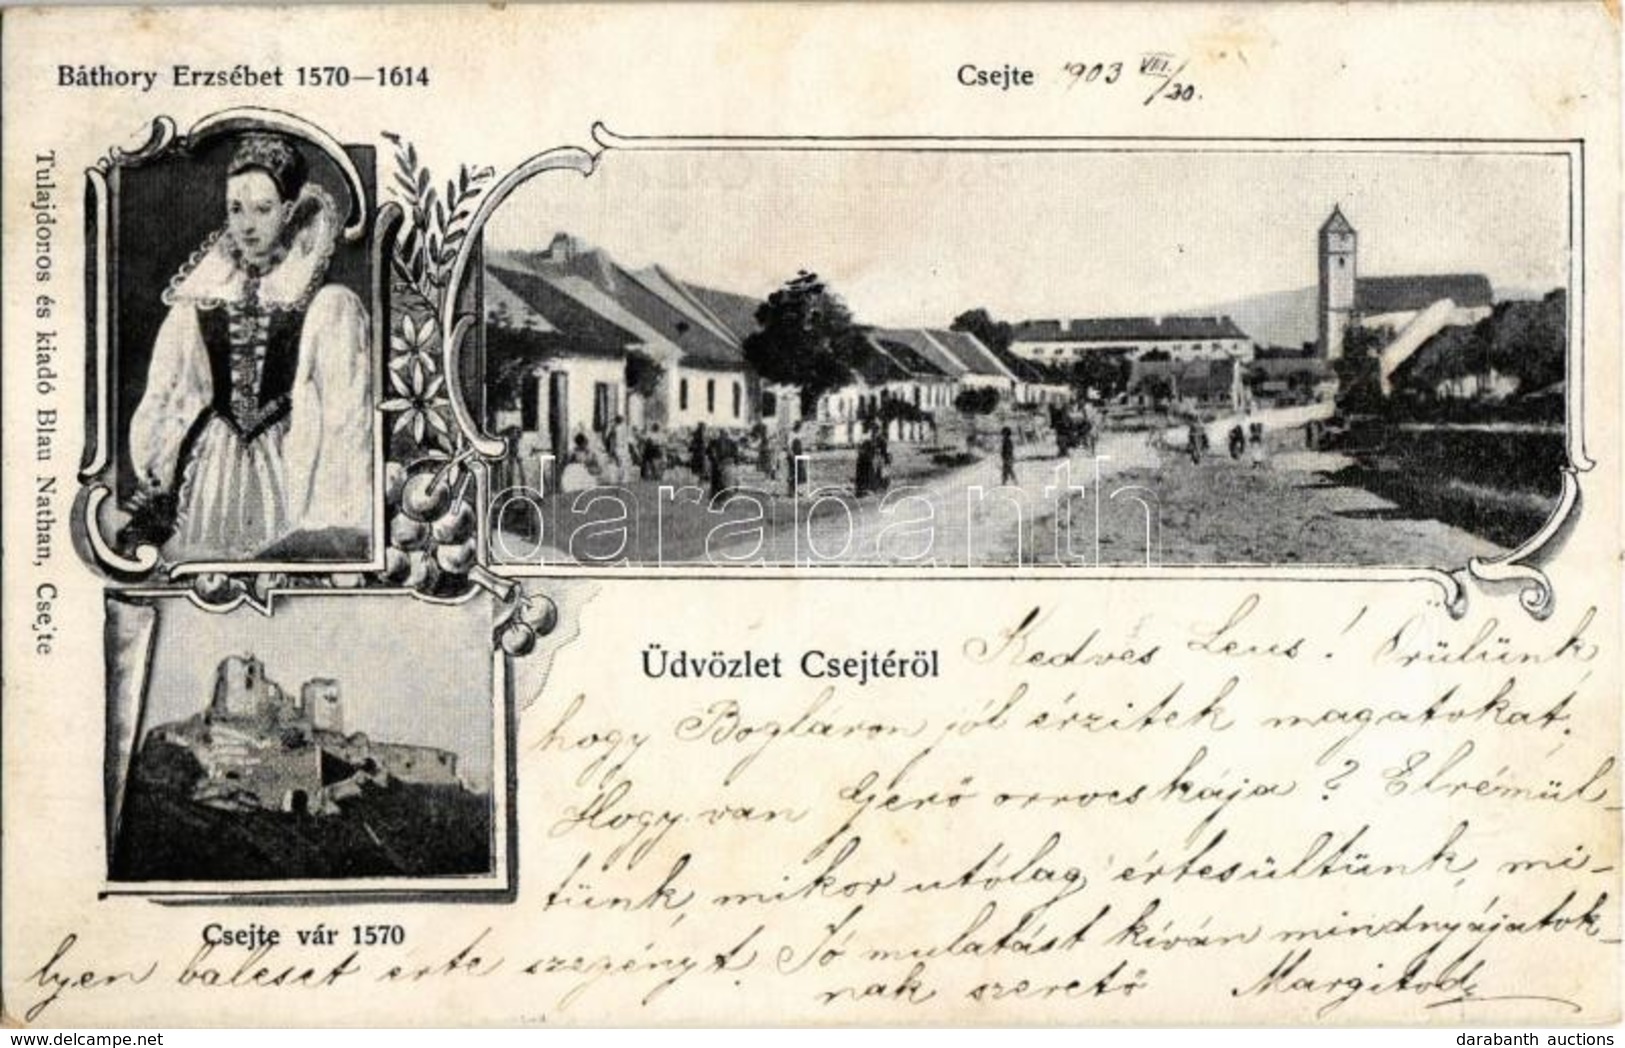 Báthory Erzsébet 1570—1614
Csejte 1903 VIII./30.
Tulajdonos és kiadó Blau Nathan, Csejte
darabanth
Üdvözlet Csejtéről
Kedves Leus! Örülünk
hogy Bogláron jól érzitek magatokat.
Hogy van Gerő orrocskája? Elrémül-
tünk, mikor utólag értesültünk, mi-
lyen baleset érte szegényt. Jó mulatást kíván mindnyájatok-
nak szerető Margitod
Csejte vár 1570
darabanth auctions